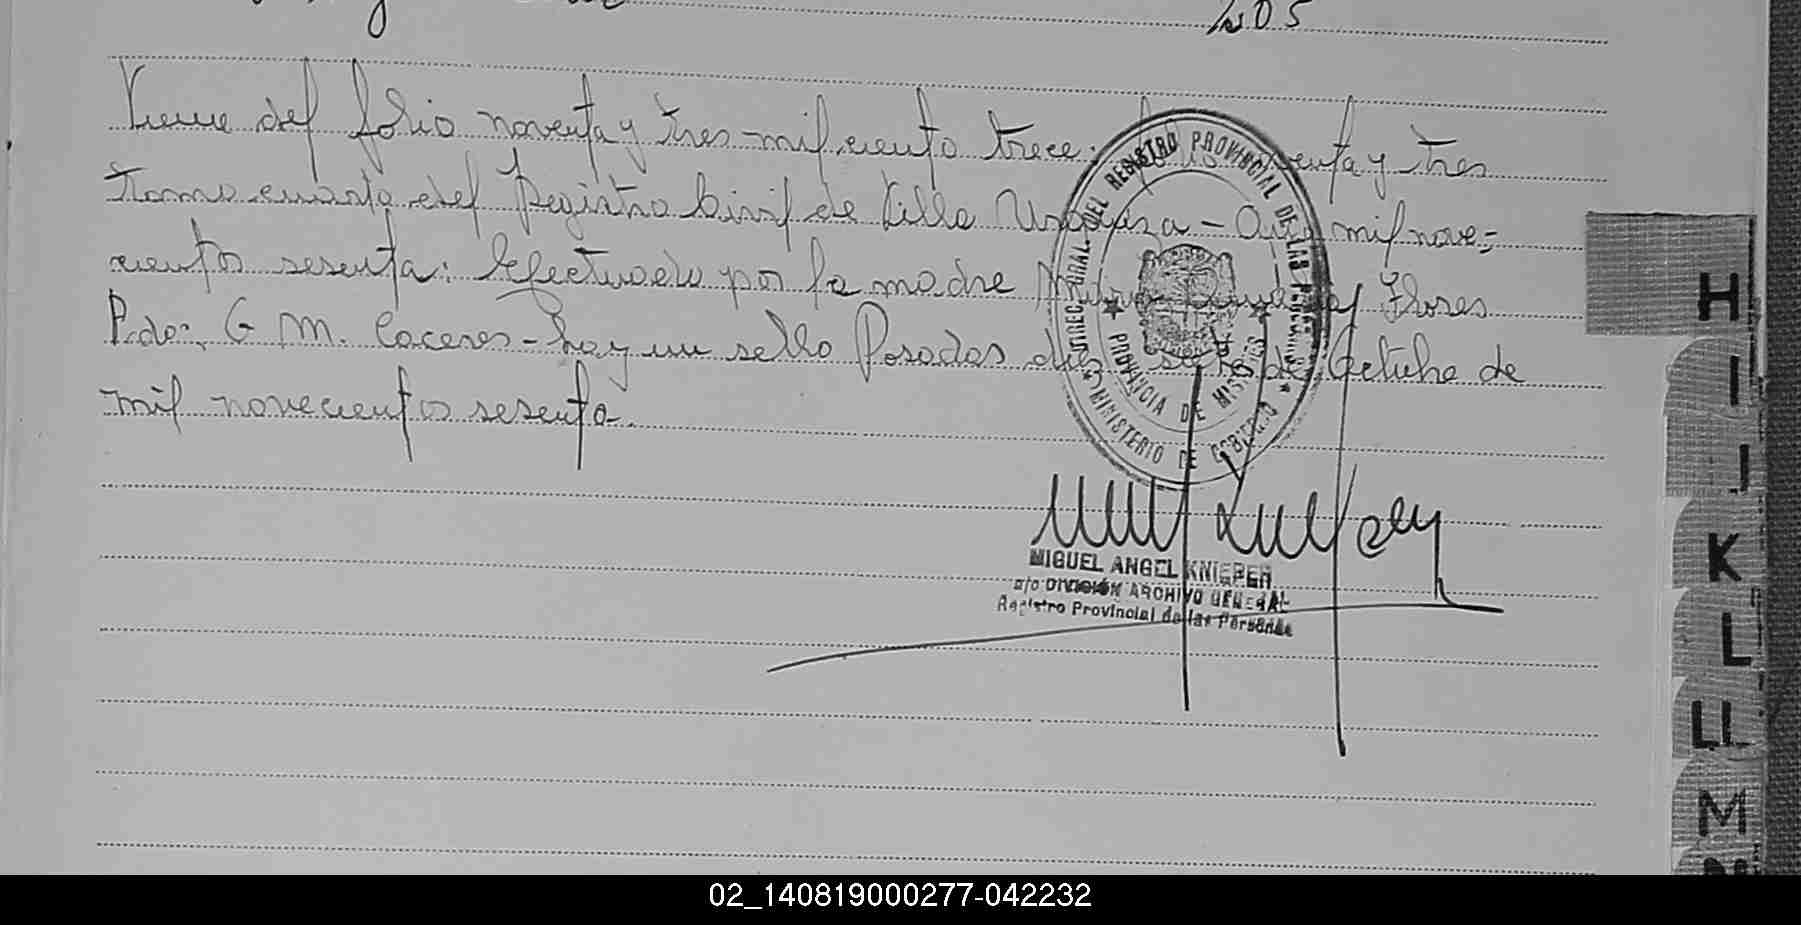 Viene del folio noventa y tres mil ciento trece: folio noventa y tres
tomo cuarto del Registro Civil de Villa Urquiza - Año mil nove=
cientos sesenta: Efectuado por la madre Flores
P.do: G M. Caceres - hay un sello Posadas de Octubre de
mil novecientos sesenta.
DIREC. GRAL. DEL REGISTRO PROVINCIAL DE LAS PERSONAS
PROVINCIA DE MISIONES
MINISTERIO DE GOBIERNO
MIGUEL ANGEL KNIEPER
a/c DIVISIÓN ARCHIVO GENERAL
Registro Provincial de las Personas
H
I
J
K
L
LL
M
02_140819000277-042232